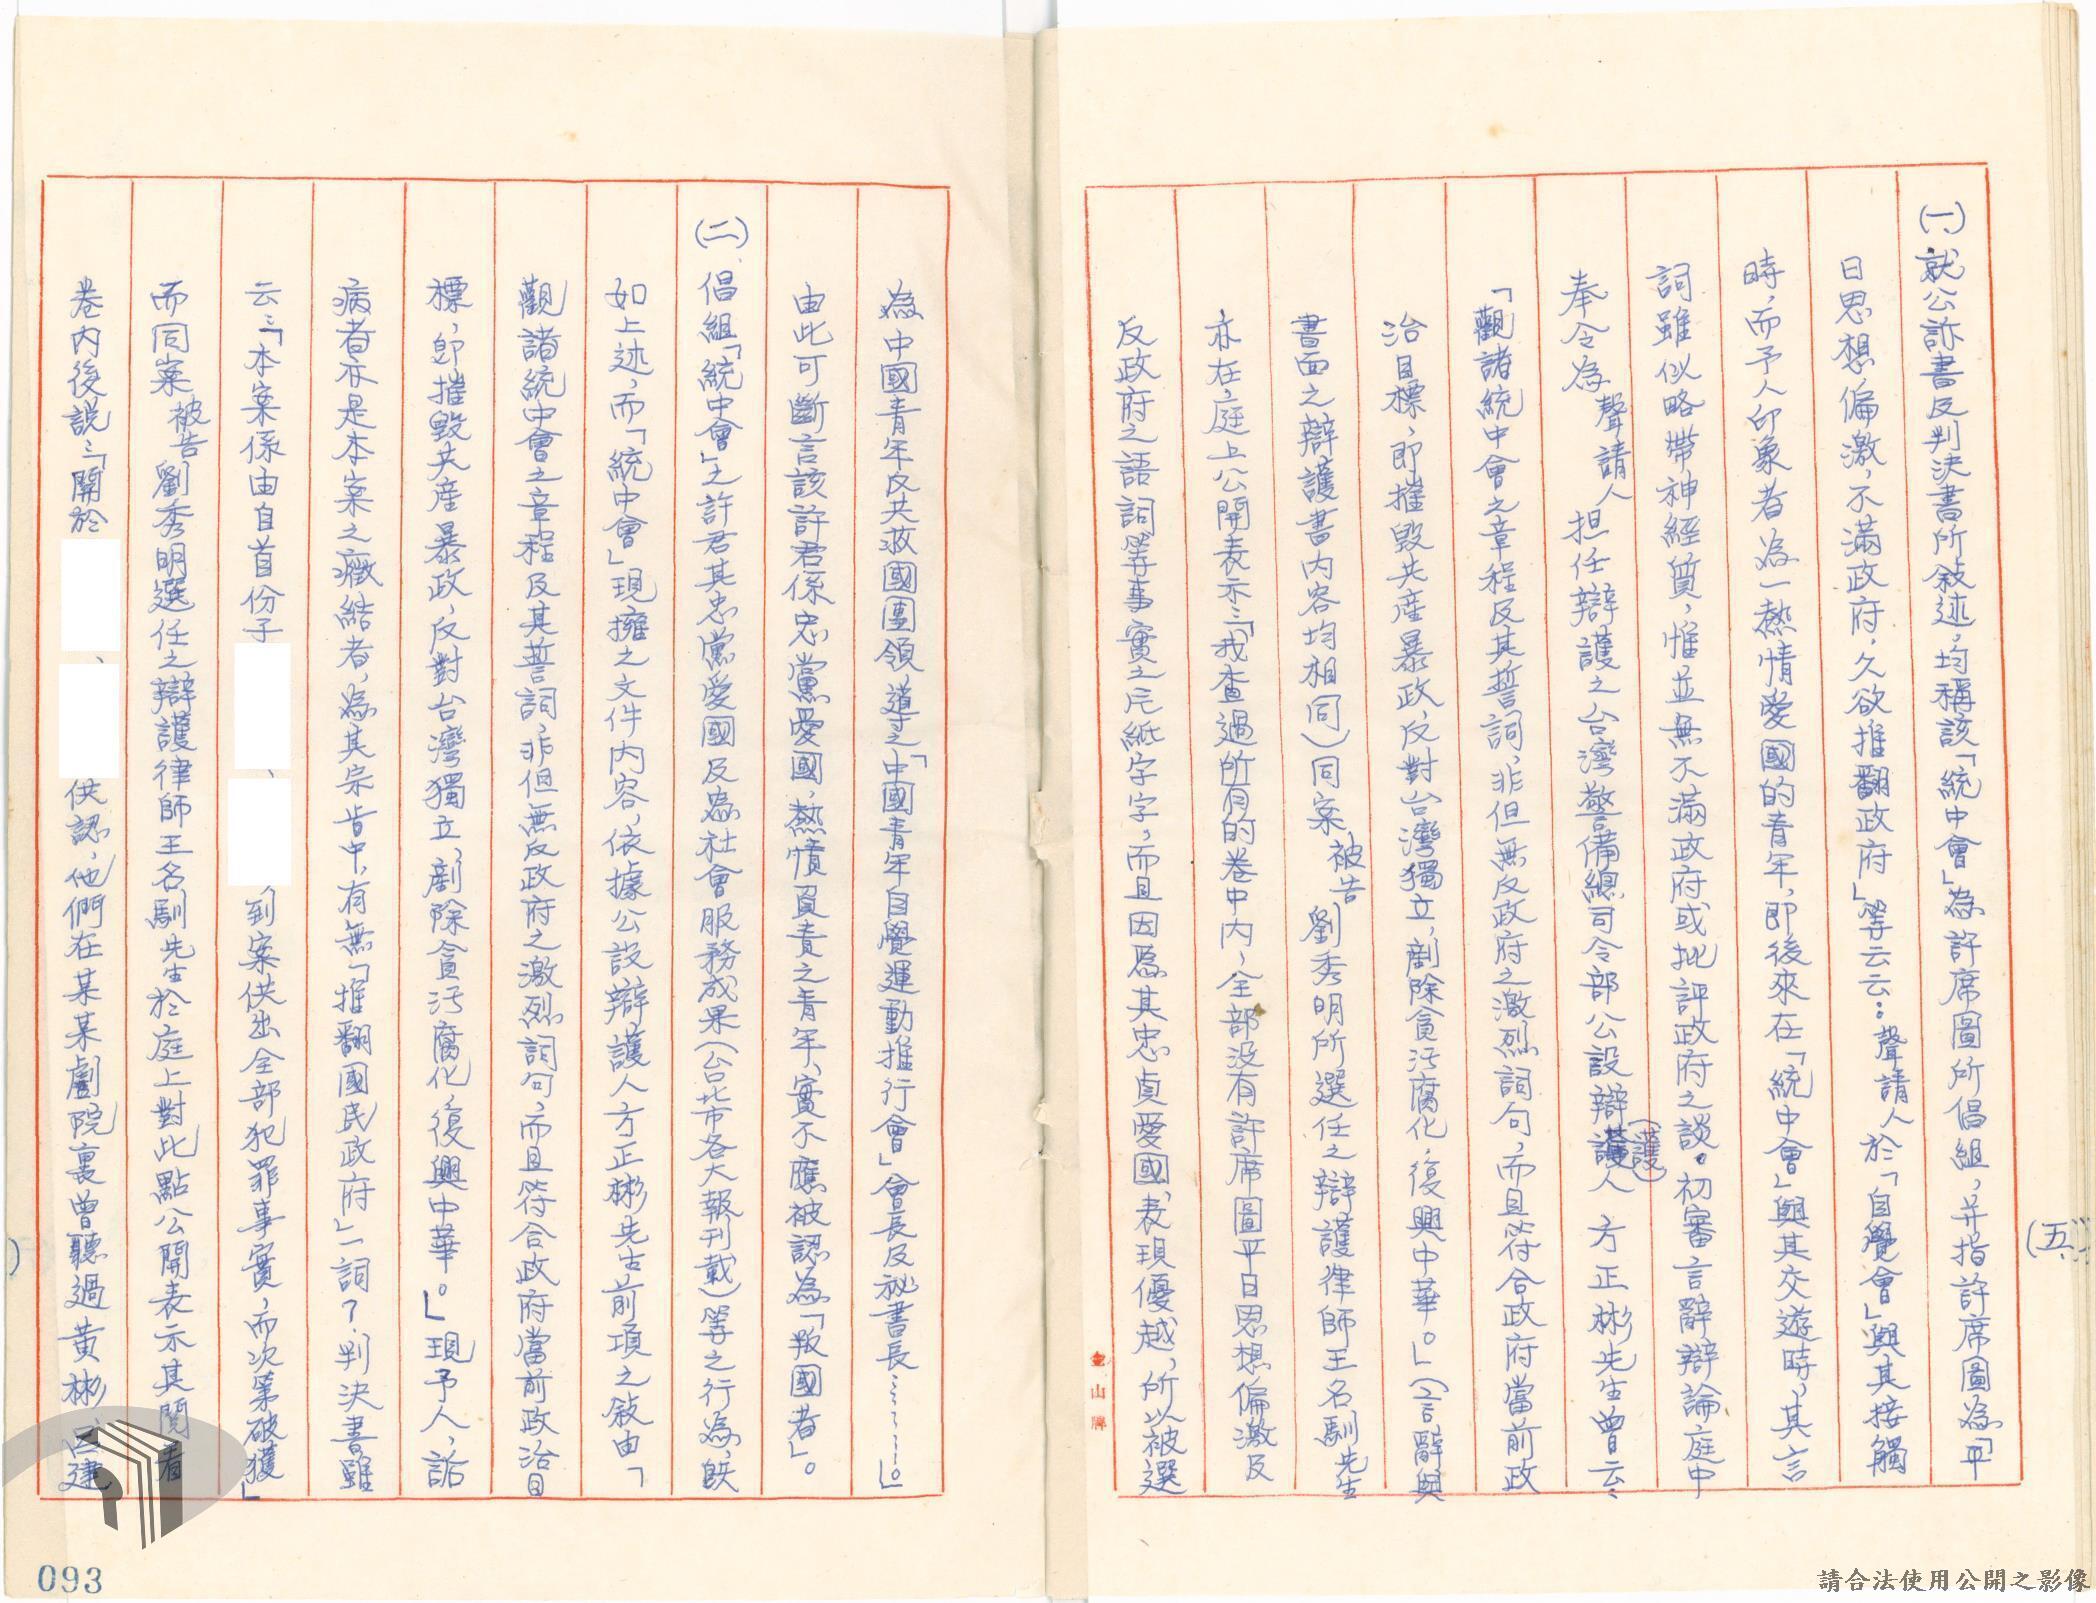 (一)、就公訴書及判決書所敍述,均稱該「統中會」為許席圖所倡組,并指許席圖為「平
日思想偏激,不滿政府,久欲推翻政府」等云云:聲請人於「自覺會」與其接觸
時,而予人印象者為一熱情愛國的青年,即後來在「統中會」與其交遊時,其言
詞雖似略帶神經質,惟並無不滿政府或批評政府之談。初審言辭辯論庭中
奉令為聲請人担任辯護之台灣警備總司令部公設辯護(護)人方正彬先生曾云:
「觀諸統中會之章程及其誓詞,非但無反政府之激烈詞句,而且符合政府當前政
治目標,即摧毀共產暴政,反對台灣獨立,剷除貪污腐化,復興中華。」(言辭與
書面之辯護書內容均相同)同案被告劉秀明所選任之辯護律師王名馴先生
亦在庭上公開表示:「我查過所有的卷中內,全部沒有許席圖平日思想偏激及
反政府之語詞等事實之片紙字字,而且因爲其忠貞愛國、表現優越,所以被選
(五)
為中國青年反共救國團領導之「中國青年自覺運動推行會」會長及祕書長……」。
由此可斷言該許君係忠黨愛國,熱憤負責之青年、實不應被認為「叛國者」。
(二)、倡組「統中會」之許君其忠黨愛國及為社會服務成果(台北市各大報刊載)等之行為,既
如上述,而「統中會」現擁之文件內容,依據公設辯護人方正彬先生前項之敍由「
觀諸統中會之章程及其誓詞,非但無反政府之激烈詞句,而且符合政府當前政治目
標,即摧毀共產暴政,反對台灣獨立,剷除貪污腐化,復興中華。」現予人,詬
病者亦是本案之癥結者,為其宗旨中,有無「推翻國民政府」一詞?判決書雖
云:「本案係由自首份子 、 到案供出全部犯罪事實,而次第破獲」
而同案被告劉秀明選任之辯護律師王名馴先生於庭上對此點公開表示其閱看
卷內後説:「關於 、 供認,他們在某某戲院裏曾聽過黃彬、呂建
金山牌
093
請合法使用公開之影像